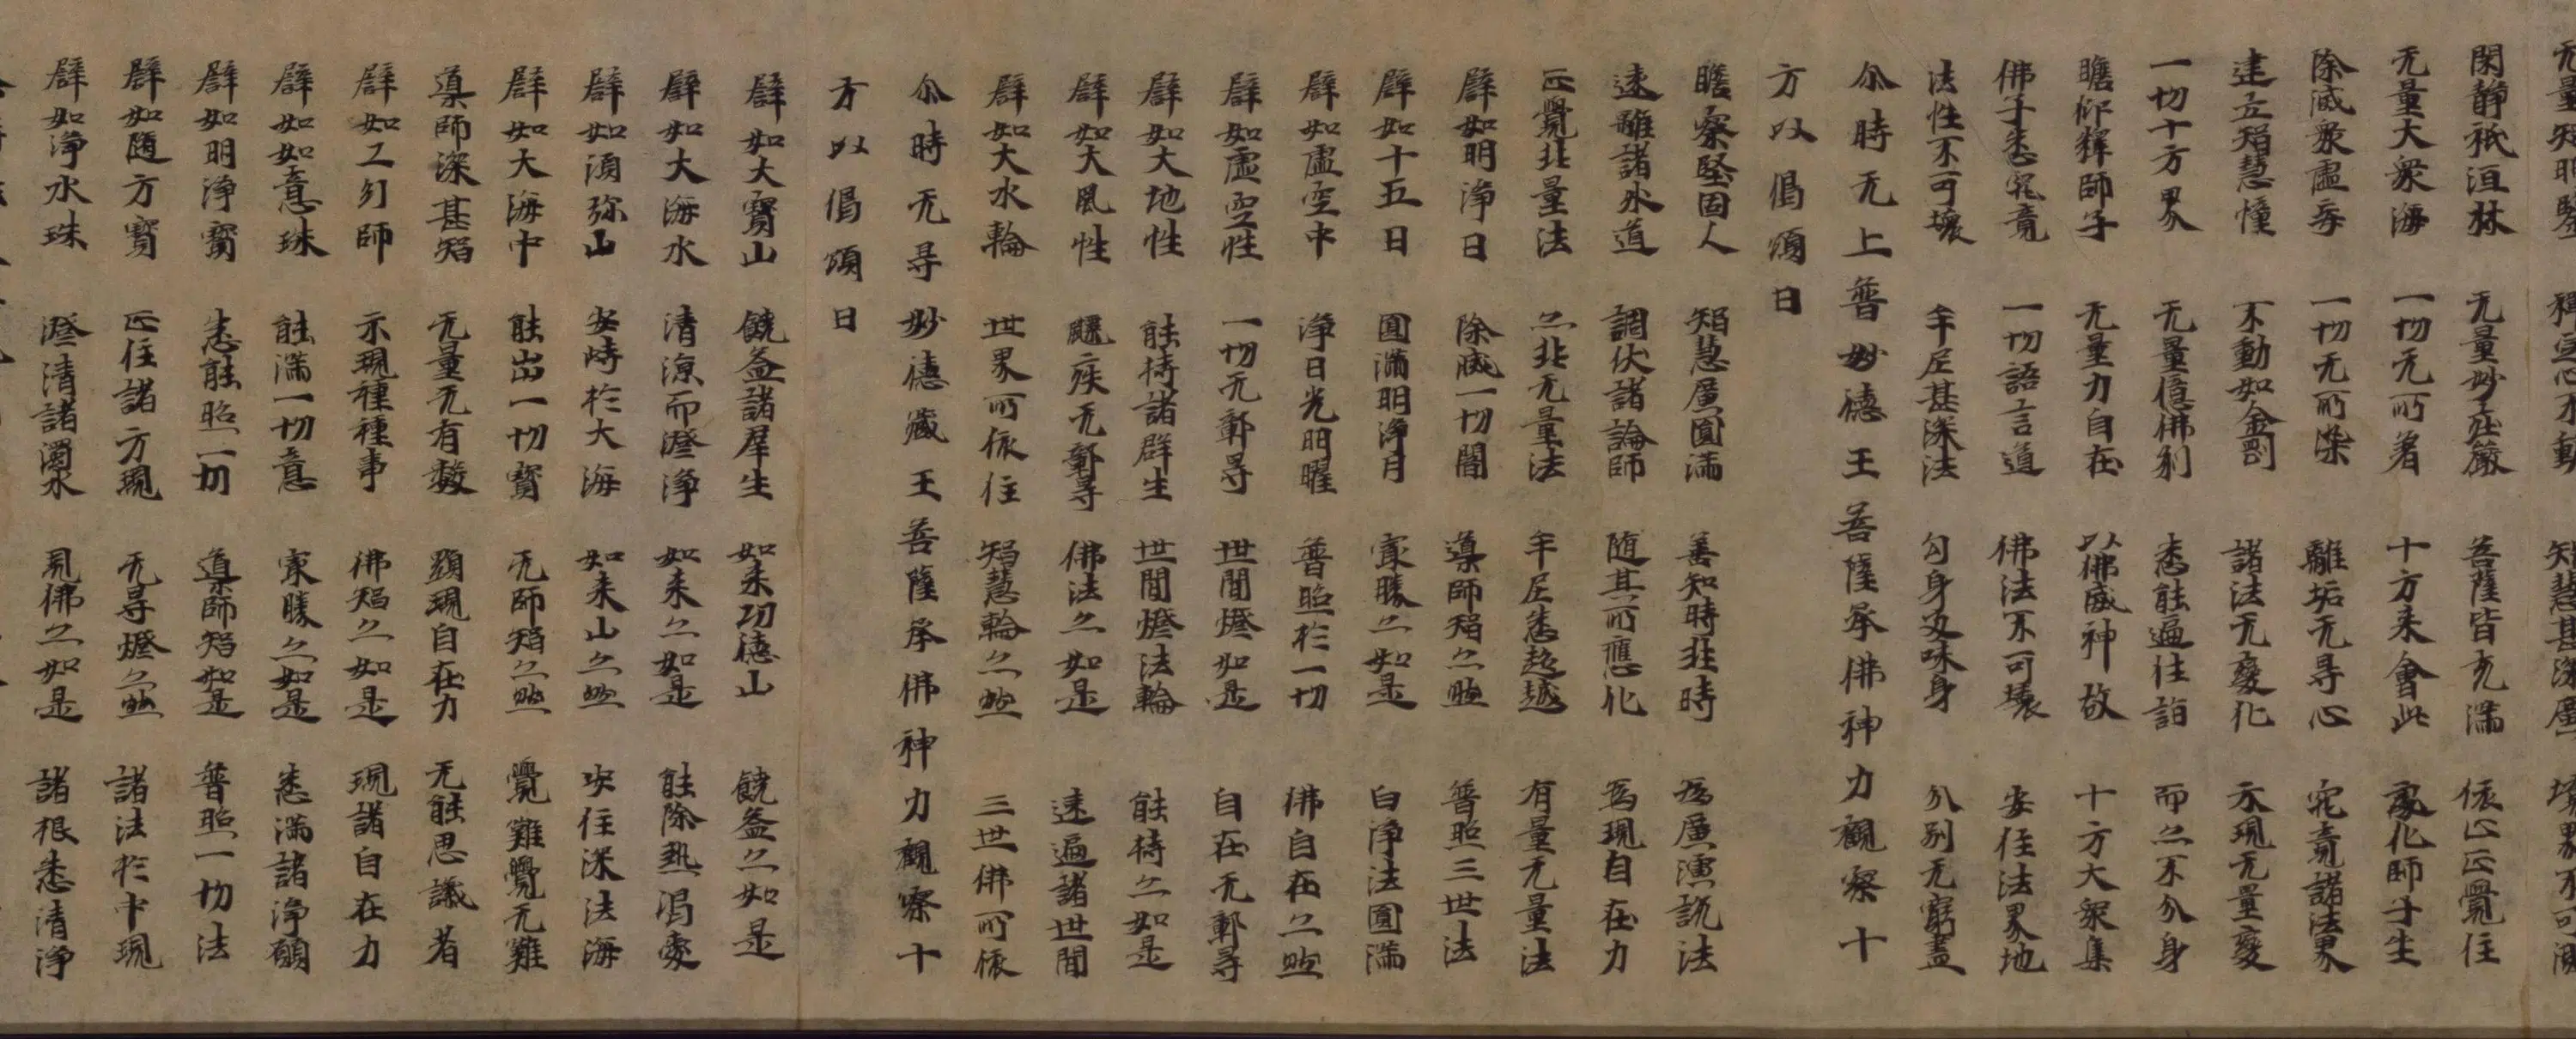 无量智明 種 心不動 知慧甚深廣 境界不可
閑靜祇洹林 无量妙莊嚴 菩薩皆充滿 依止正覺住
无量大衆海 一切无所著 十方来會此 處化師子生
除滅衆虛妄 一切无所染 離垢无㝵心 究竟諸法界
建立智慧幢 不動如金剛 諸法无變化 示現无量變
一切十方界 无量億佛刹 悉能遍往詣 而亦不分身
瞻仰釋師子 无量力自在 以佛威神故 十方大衆集
佛子悉究竟 一切語言道 佛法不可壞 安住法界地
法性不可壞 牟尼甚深法 句身及味身 分別无窮盡
尒時无上普妙德王菩薩承佛神力觀察十
方以偈頌曰
瞻察堅固人 智慧廣圓滿 善知時非時 爲廣演說法
速離諸外道 調伏諸論師 随其所應化 爲現自在力
正覺非量法 亦非无量法 牟尼悉超越 有量无量法
譬如明淨日 除滅一切闇 導師智亦然 普照三世法
譬如十五日 圓滿明淨月 㝡勝亦如是 白淨法圓滿
譬如虛空中 淨日光明曜 普照於一切 佛自在亦然
譬如虛空性 一切无鄣㝵 世間燈如是 自在无鄣㝵
譬如大地性 能持諸群生 世間燈法輪 能持亦如是
譬如大風性 飄疾无鄣㝵 佛法亦如是 速遍諸世間
譬如大水輪 世界所依住 智慧輪亦然 三世佛所依
尒時无㝵妙德藏王菩薩承佛神力觀察十
方以偈頌曰
譬如大寶山 饒益諸羣生 如来功德山 饒益亦如是
譬如大海水 清涼而澄淨 如来亦如是 能除熱渴愛
譬如湏弥山 安峙於大海 如来山亦然 安住深法海
譬如大海中 能出一切寶 无師智亦然 覺難覺无難
導師深甚智 无量无有數 顯現自在力 无能思議者
譬如工幻師 示現種種事 佛智亦如是 現諸自在力
譬如如意珠 能滿一切意 㝡勝亦如是 悉滿諸淨願
譬如明淨寶 悉能照一切 導師智如是 普照一切法
譬如随方寶 正住諸方現 无㝵燈亦然 諸法於中現
譬如淨水珠 澄清諸濁水 見佛亦如是 諸根悉清淨